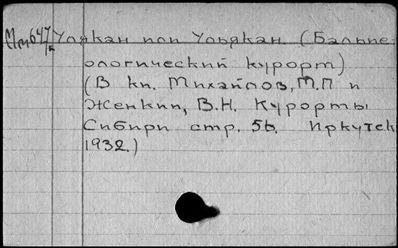 Мт647/Б Уоякан или Уоьякан. (Бальне-
ологический курорт)
(В кн. Михайлов, М.П и
Женкин, В.Н. Курорты
Сибири стр. 56. Иркутск
1932.)